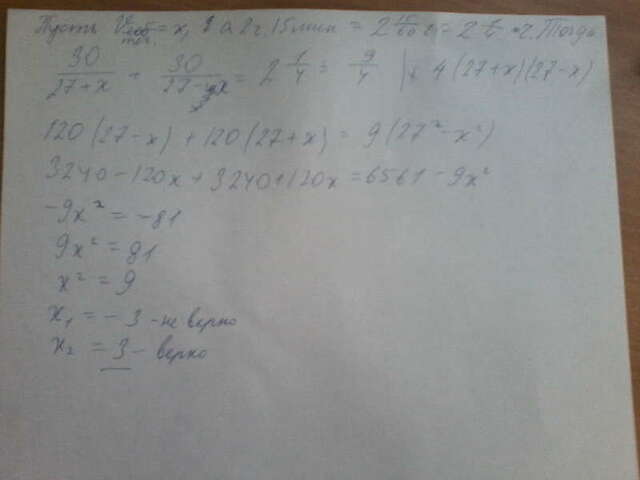 Пусть V теч. = x, а 2ч. 15мин = 2 15/60 = 2 1/4 ч. Тогда
30/(27+x) + 30/(27-x) = 2 1/4 = 9/4 | · 4(27+x)(27-x)
120(27-x) + 120(27+x) = 9(27² - x²)
3240 - 120x + 3240 + 120x = 6561 - 9x²
-9x² = -81
9x² = 81
x² = 9
x₁ = -3 - не верно
x₂ = 3 - верно